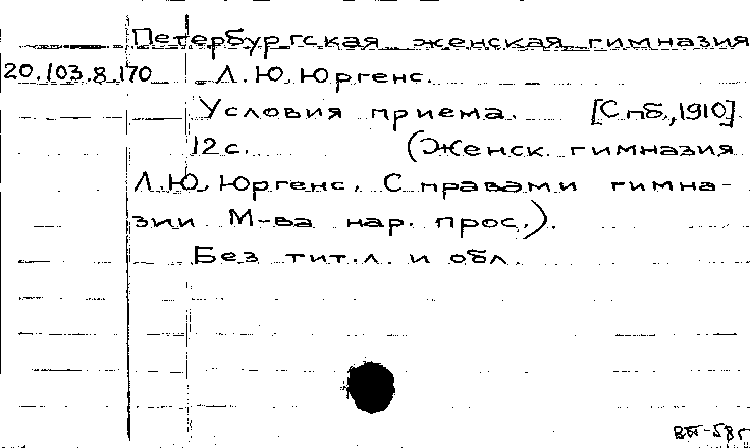 Петербургская женская гимназия
20.103.8.170 Л.Ю. Юргенс.
Условия приема. [Спб., 1910].
12 с. (Женск. гимназия
Л.Ю. Юргенс. С правами гимна-
зии М-ва нар. прос.).
Без тит. л. и обл.